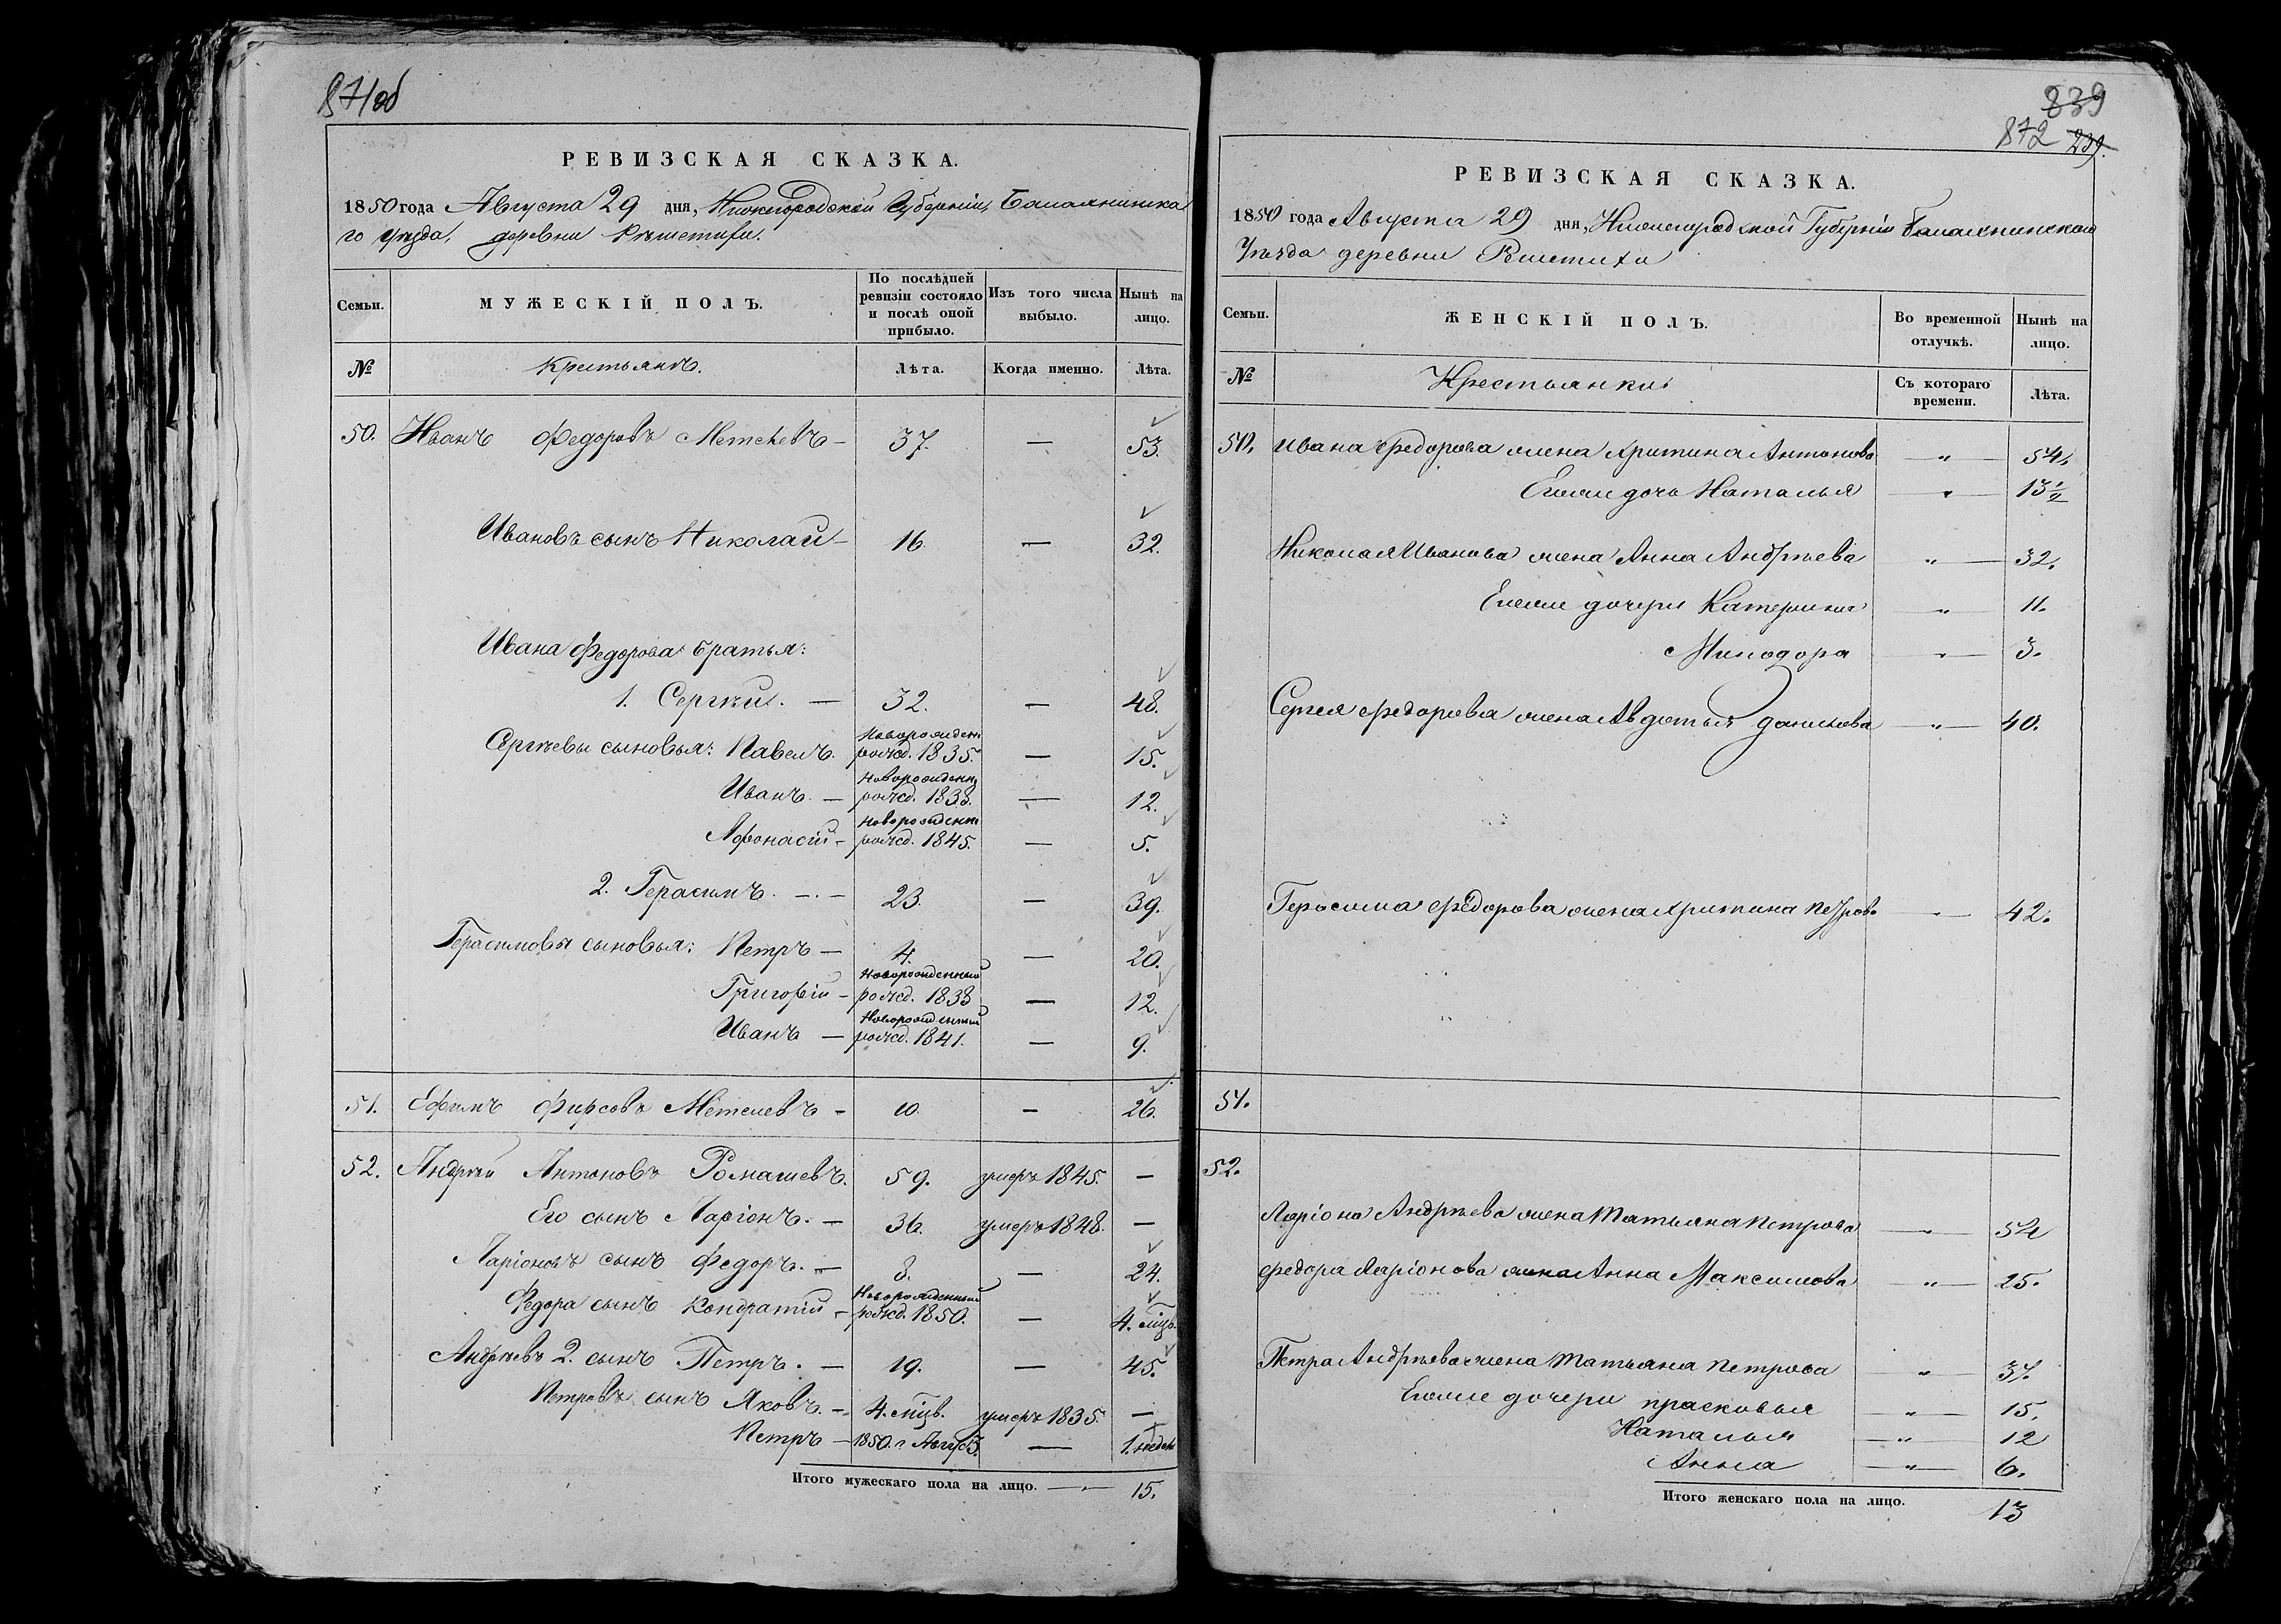 871об
РЕВИЗСКАЯ СКАЗКА.
1850 года Августа 29 дня, Нижегородской Губерніи, Балахнинска
го уѣзда, деревни Рѣшетихи.
Семьи. МУЖЕСКІЙ ПОЛЪ. По послѣдней ревизіи состояло и послѣ оной прибыло. Изъ того числа выбыло. Нынѣ на лицо.
№ Крестьянъ. Лѣта. Когда именно. Лѣта.
50. Иванъ Федоровъ Метелевъ — 37. — 53.
Ивановъ сынъ Николай — 16. — 32.
Ивана Федорова братья:
1. Сергѣй. — 32. — 48.
Сергѣевы сыновья: Павелъ. Новорожден рожд. 1835. — 15.
Иванъ. — Новорожденн рожд. 1838. — 12.
Афонасій — Новорожденн рожд. 1845. — 5.
2. Герасимъ. — 23. — 39.
Герасимовы сыновья: Петръ — 4. — 20.
Григорій — Новорожденный рожд. 1838 — 12.
Иванъ — Новорожденный рожд. 1841. — 9.
51. Ефимъ Фирсовъ Метелевъ — 10. — 26.
52. Андрей Антоновъ Ромашевъ. 59. умеръ 1845. —
Его сынъ Ларіонъ. — 36. умеръ 1848. —
Ларіоновъ сынъ Федоръ. — 8. — 24.
Федора сынъ Кондратій — Новорожденный рожд. 1850. — 4. мцв.
Андрѣевъ 2. сынъ Петръ. — 19. — 45.
Петровъ сынъ Яковъ. — 4. мцв. умеръ 1835. —
Петръ — 1850. г. Август. — 1. недели
Итого мужескаго пола на лицо. — 15.
839
872 239.
РЕВИЗСКАЯ СКАЗКА.
1850 года Августа 29 дня, Нижегородской Губерніи Балахнинскаго
Уѣзда деревни Решетихи
Семьи. ЖЕНСКІЙ ПОЛЪ. Во временной отлучкѣ. Нынѣ на лицо.
№ Крестьянки Съ котораго времени. Лѣта.
50. Ивана Федорова жена Хритина Антонова — „ — 54.
Егоже дочь Наталья — „ — 13½
Николая Иванова жена Анна Андрѣева — „ — 32.
Егоже дочери Катерина — „ — 11.
Минодора — „ — 3.
Сергея Федорова жена Авдотья Данилова — „ — 40.
Герасима Федорова жена Хритина Петрова — „ — 42.
51.
52.
Ларіона Андрѣева жена Татьяна Петрова — „ — 54
Федора Ларіонова жена Анна Максимова — „ — 25.
Петра Андрѣева жена Татьяна Петрова — „ — 37.
Егоже дочери Прасковья — „ — 15.
Наталья — „ — 12
Анна — „ — 6.
Итого женскаго пола на лицо. 13